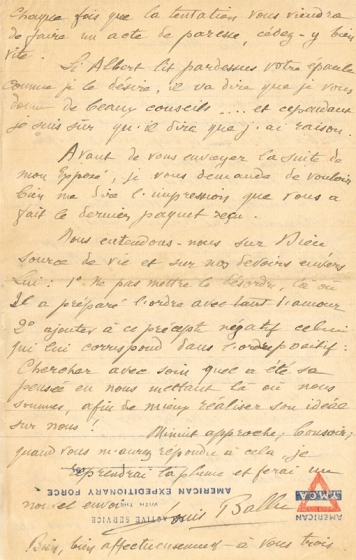 Chaque fois que la tentation vous viendra
de faire un acte de paresse, cédez-y bien
vite.
Si Albert lit pardessus votre épaule
comme je le désire, il va dire que je vous
donne de beaux conseils .... et cependant
je suis sûr qu'il dira que j'ai raison.
Avant de vous envoyer la suite de
mon exposé, je vous demande de vouloir
bien me dire l'impression que vous a
fait le dernier paquet reçu.
Nous entendons-nous sur Dieu
source de vie et sur nos devoirs envers
Lui : 1° ne pas mettre le désordre, là où
Il a préparé l'ordre avec tant d'amour
2° ajouter à ce précepte négatif celui
qui lui correspond dans l'ordre positif :
Chercher avec soin quelle a été sa
pensée en nous mettant là où nous
sommes, afin de mieux réaliser son idéal
sur nous !
Minuit approche, bonsoir,
quand vous m'aurez répondu à cela, je
reprendrai la plume et ferai un
envoi
Louis
Bien, bien affectueusement à vous trois
AMERICAN
Y.M.C.A.
ACTIVE SERVICE
WITH THE
AMERICAN EXPEDITIONARY FORCE